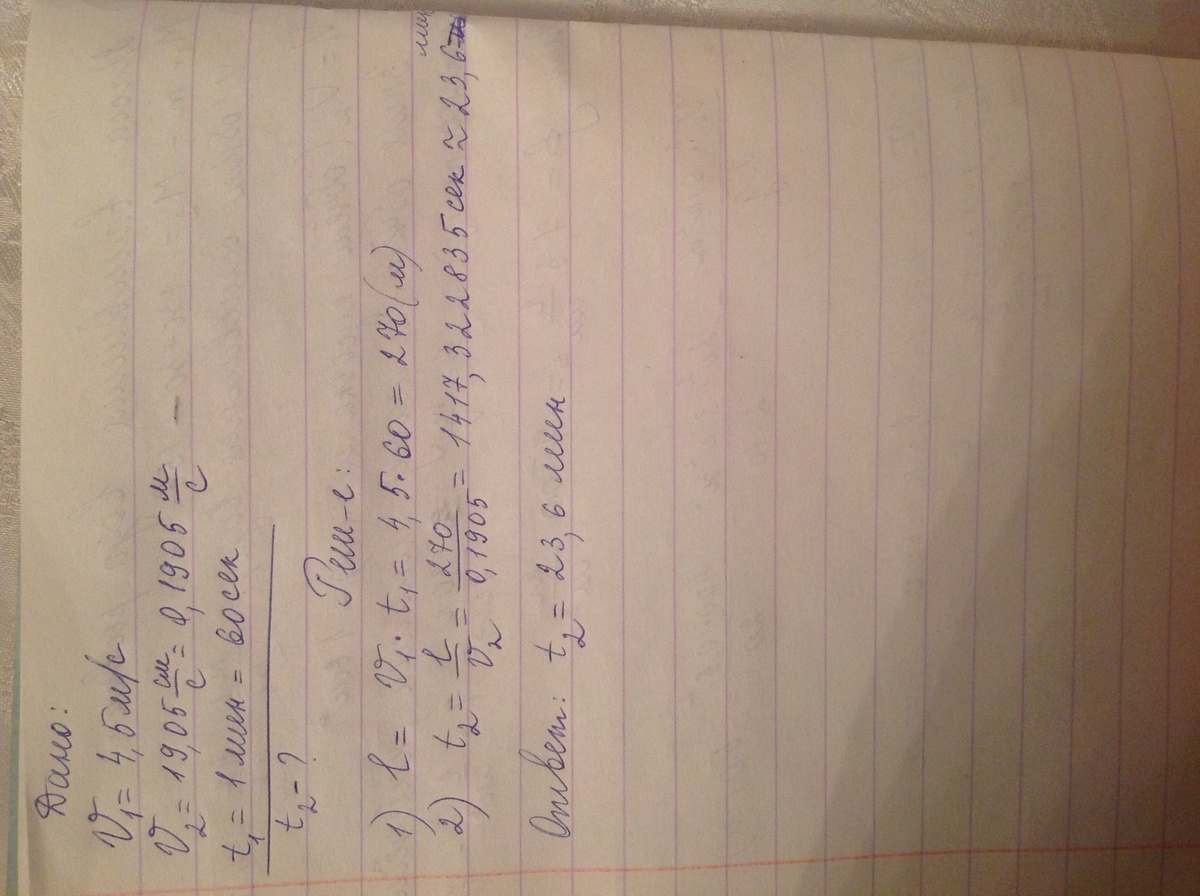 Дано:
V₁ = 4,5 м/с
V₂ = 19,05 см/с = 0,1905 м/с
t₁ = 1 мин = 60 сек
t₂ - ?
Реш-е:
1) l = V₁ · t₁ = 4,5 · 60 = 270 (м)
2) t₂ = l/V₂ = 270/0,1905 = 1417,322835 сек ≈ 23,6 мин
Ответ: t₂ = 23,6 мин